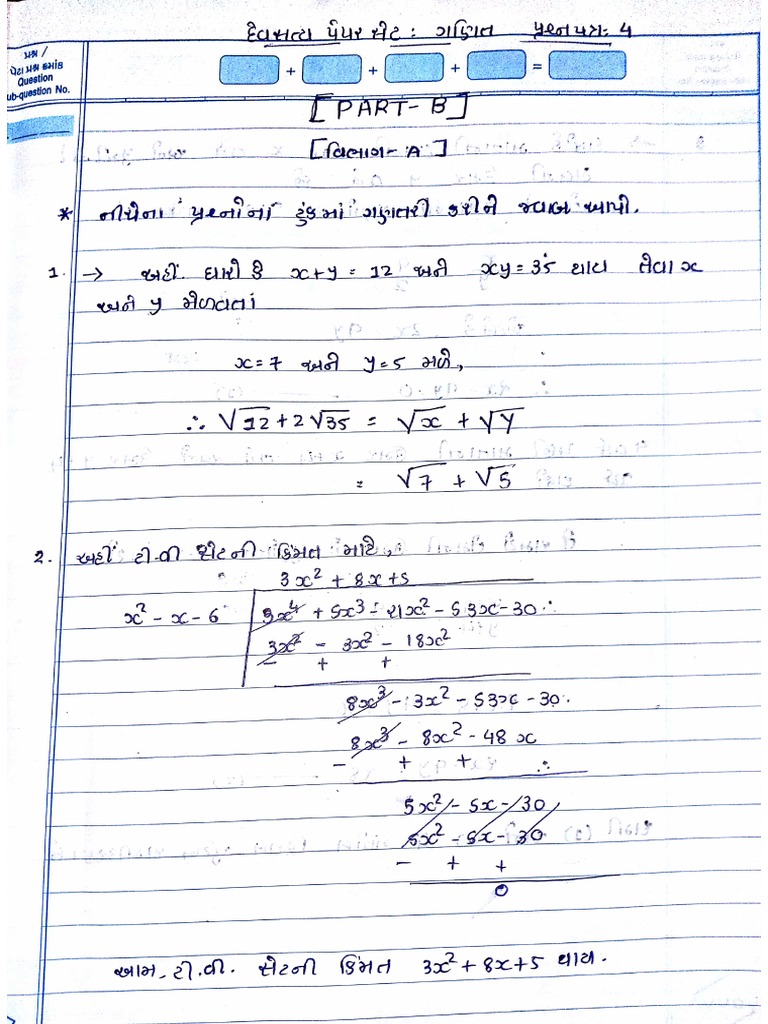 દેવસત્ય પેપર સેટ : ગણિત પ્રશ્નપત્ર: 4
પ્રશ્ન /
પેટા પ્રશ્ન ક્રમાંક
Question
ub-question No.
+ + + =
[PART-B]
[વિભાગ-A]
* નીચેના પ્રશ્નોનાં ટુંકમાં ગણતરી કરીને જવાબ આપો.
1. → અહીં ધારો કે x+y = 12 અને xy = 35 થાય તેવા x
અને y મેળવતાં
x=7 અને y=5 મળે,
∴ √12+2√35 = √x + √y
= √7 + √5
2. અહીં ટી.વી સેટની કિંમત માટે,
3x² + 8x+5
x² - x - 6 3x⁴ + 5x³ - 21x² - 53x - 30
3x² - 3x² - 18x²
- + +
8x³ - 3x² - 53x - 30.
8x³ - 8x² - 48x
- + +
5x² - 5x - 30
5x² - 5x - 30
- + +
0
આમ, ટી.વી. સેટની કિંમત 3x² + 8x + 5 થાય.